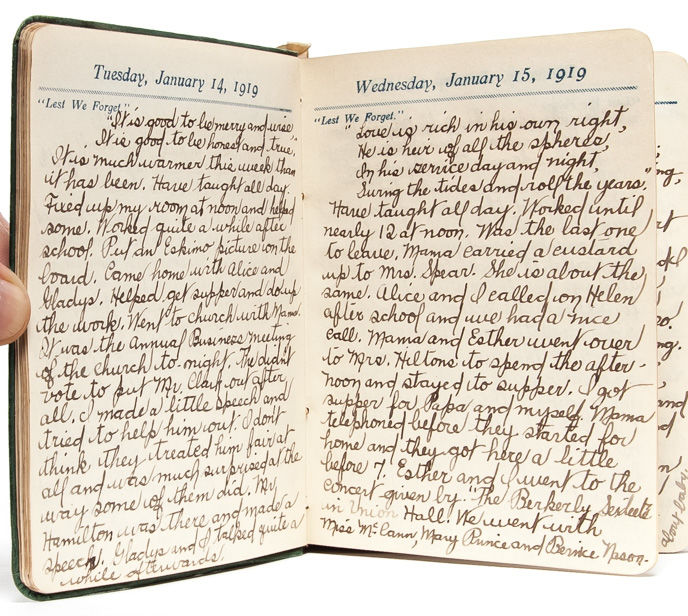 Tuesday, January 14, 1919
"Lest We Forget."
"It is good to be merry and wise,
It is good to be honest and true."
It is much warmer this week than
it has been. Have taught all day.
Fixed up my room at noon and helped
some. Worked quite a while after
school. Put an Eskimo picture on the
board. Came home with Alice and
Gladys. Helped get supper and do up
the work. Went to church with Mama.
It was the Annual Business meeting
of the church to-night. The didn't
vote to put Mr. Clary out after
all. I made a little speech and
tried to help him out. I don't
think they treated him fair at
all and was much surprised at the
way some of them did. Mr.
Hamilton was there and made a
speech. Gladys and I talked quite a
while afterwards.
Wednesday, January 15, 1919
"Lest We Forget."
"Love is rich in his own right,
He is heir of all the spheres,
In his service day and night,
Swing the tides and roll the years."
Have taught all day. Worked until
nearly 12 at noon. Was the last one
to leave. Mama carried a custard
up to Mrs. Spear. She is about the
same. Alice and I called on Helen
after school and we had a nice
call. Mama and Esther went over
to Mrs. Hiltons to spend the after-
noon and stayed to supper. I got
supper for Papa and myself. Mama
telephoned before they started for
home and they got here a little
before 7. Esther and I went to the
concert given by "The Berkerly Sextette
in Union Hall. We went with
Miss McCann, Mary Prince and Bernice Nason.